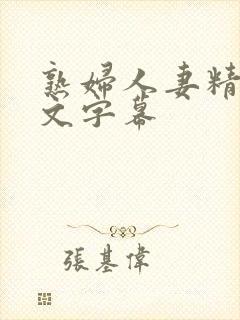 熟婦人妻精
文字幕
張基偉